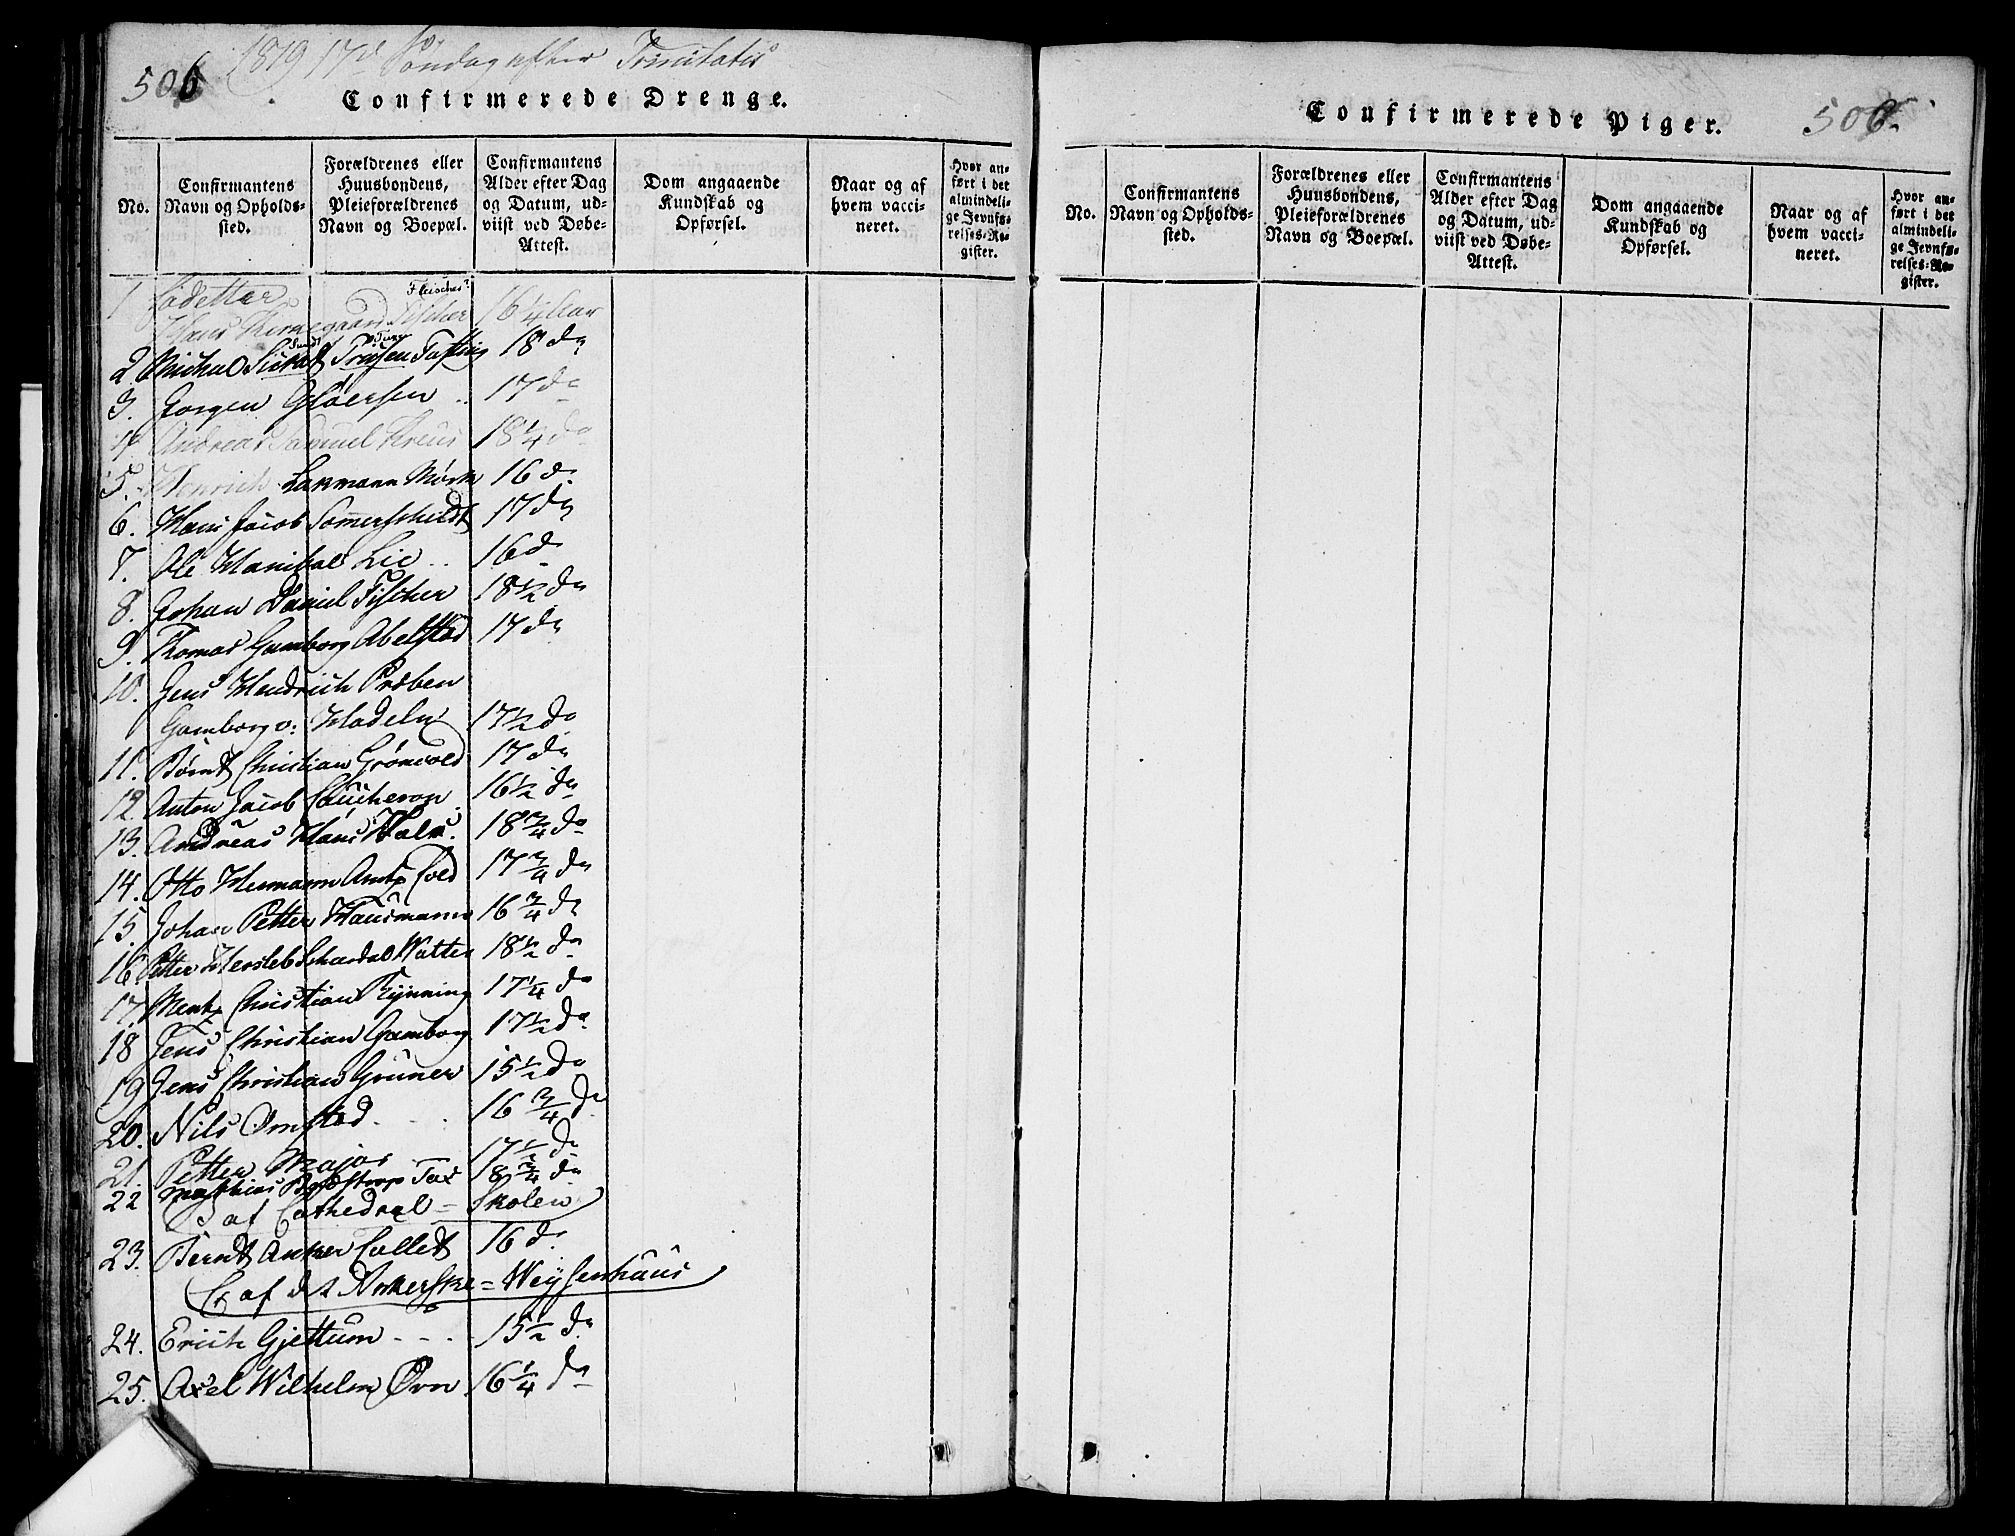 506
1819 17d Søndag efter Trinitatis
Confirmerede Drenge.
No.
Confirmantens Navn og Opholdssted.
Forældrenes eller Huusbondens, Pleieforældrenes Navn og Boepæl.
Confirmantens Alder efter Dag og Datum, udviist ved Døbe-Attest.
Dom angaaende Kundskab og Opførsel.
Naar og af hvem vaccineret.
Hvor anført i det almindelige Jevnførelses-Register.
1 Cadetter
Hans Kirkegaard Fischer 16 1/4 Aar
2. Michael 18 do
3. Jørgen Gløersen .. 17 do
4 Andreas Samuel Kreus 18 1/4 do
5. Henrich Lakmann Mørk 16 do
6. Hans Jacob Somerschildt 17 do
7. Ole Hanibal Lie .. 16 do
8. Johan Daniel Fischer 18 1/2 do
9. Thomas Gamborg Abelsted 17 do
10. Jens Hendrich Preben
Gamborg v: Hadeln 17 1/2 do
11. Børnt Christian Grønvold 17 do
12. Anton Jacob Coucheron 16 1/2 do
13. Andreas Hans Holm. 18 3/4 do
14. Otto Hermann Cold 17 3/4 do
15. Johan Petter Hausmann 16 3/4 do
16 Petter Hersleb Harboe 18 1/2 do
17 Mentz Christian Rynning 17 1/4 do
18 Jens Christian Gamborg 17 1/2 do
19 Jens Christian Grüner 15 1/2 do
20. Nils Ørnsted . . . 16 3/4 do
21. Petter Major 17 1/2 do
22 Mathias Tax 18 3/4 do
B af Cathedral = Skolen
23. Bernt Anker Collet 16 do
C af det Ankerske = Weysenhaus
24. Erich Gjettum - - - 15 1/2 do
25. Axel Wilhelm Ørn 16 1/4 do
Confirmerede Piger.
506.
No.
Confirmantens Navn og Opholdssted.
Forældrenes eller Huusbondens, Pleieforældrenes Navn og Boepæl.
Confirmantens Alder efter Dag og Datum, udviist ved Døbe-Attest.
Dom angaaende Kundskab og Opførsel.
Naar og af hvem vaccineret.
Hvor anført i det almindelige Jevnførelses-Register.